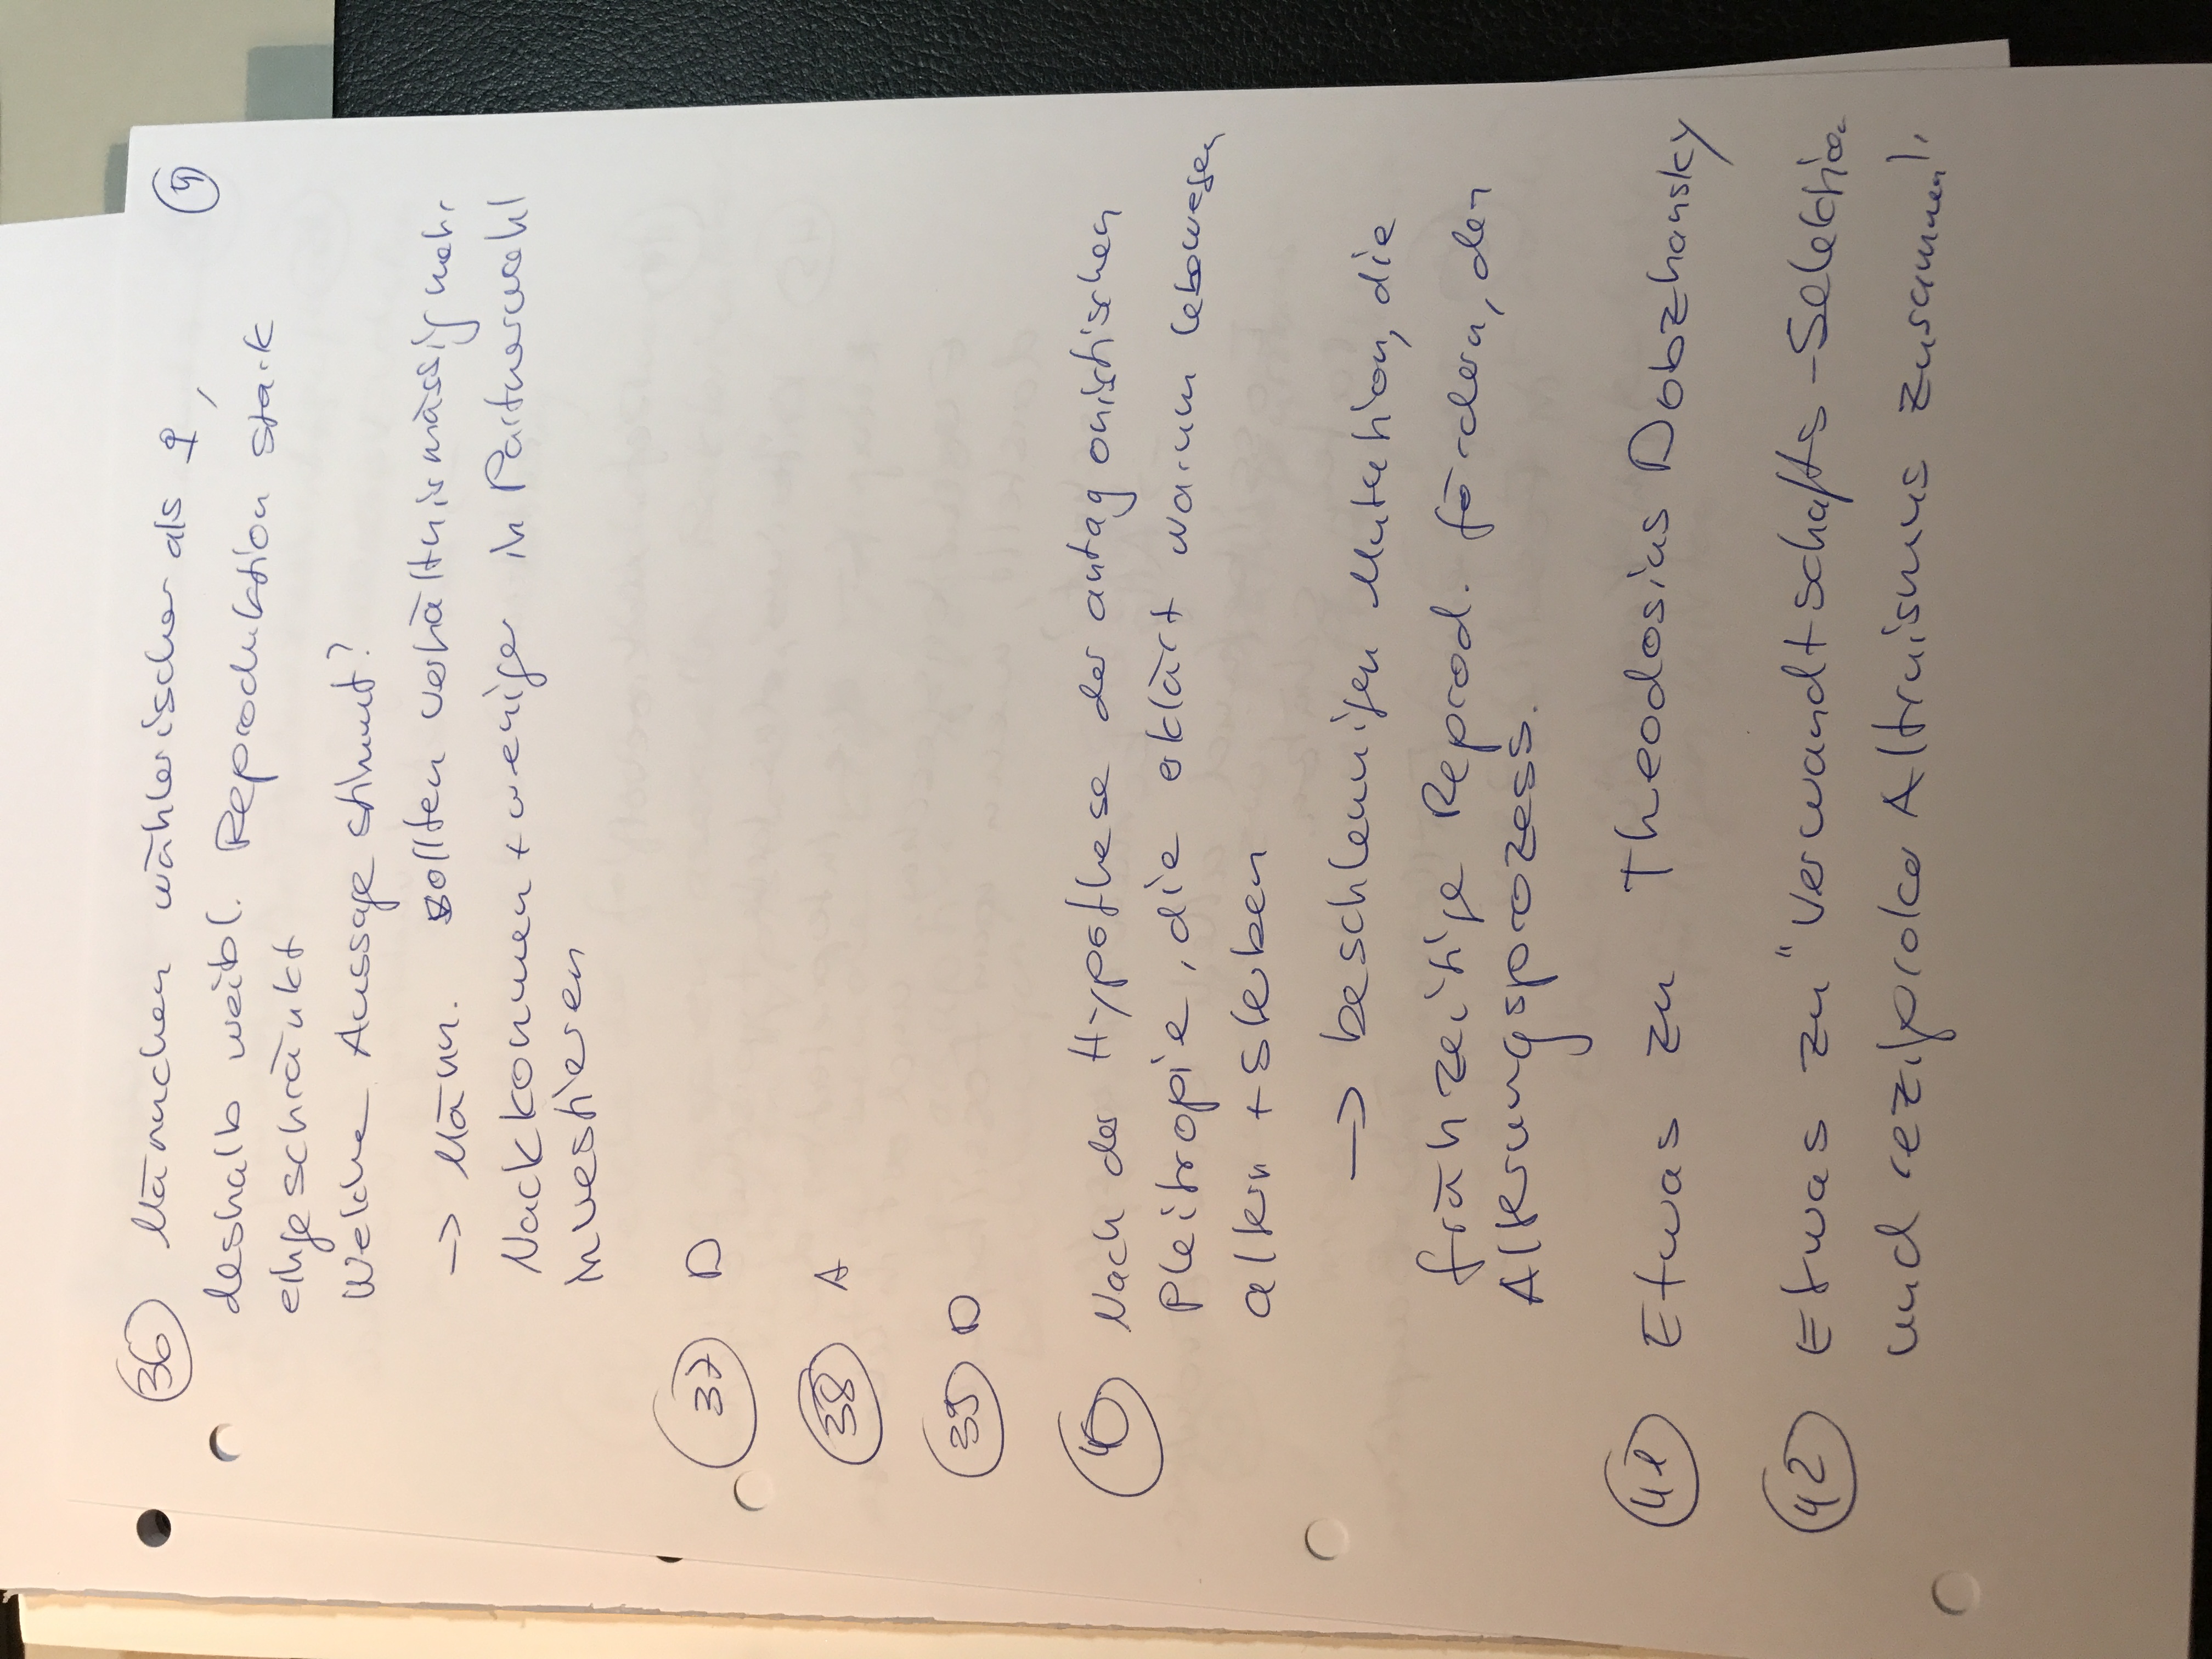 36 Männchen wählerischer als ♀,
9
deshalb weibl. Reproduktion stark
eingeschränkt
Welche Aussage stimmt?
→ Männ. sollten verhältnismässig mehr
Nackkommen + weniger in Partnerwahl
investieren
37 D
38 A
39 D
40 Nach der Hypothese der antagonistischen
Pleitropie, die erklärt warum Lebewesen
altern + sterben
→ beschleunigen Mutation, die
frühzeitige Reprod. fördern, den
Alterungsprozess.
41 Etwas zu Theodosius Dobzhansky
42 Etwas zu "Verwandtschafts-Selektion
und reziproker Altruismus zusammen"